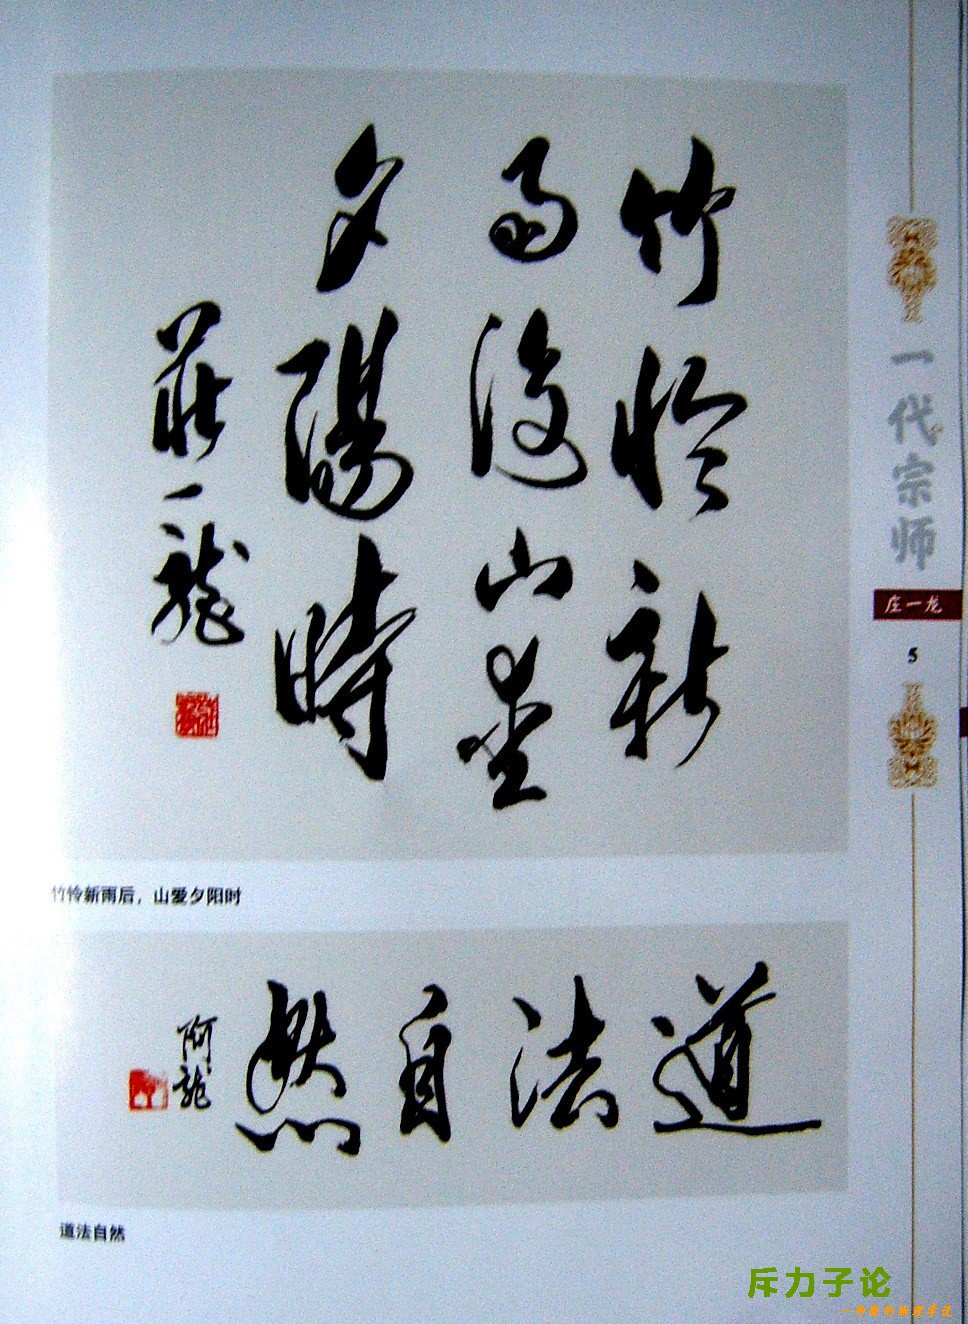 竹怜新
雨後山愛
夕陽時
莊一龍
竹怜新雨后，山爱夕阳时
道法自然
阿龍
道法自然
一代宗师
庄一龙
5
斥力子论